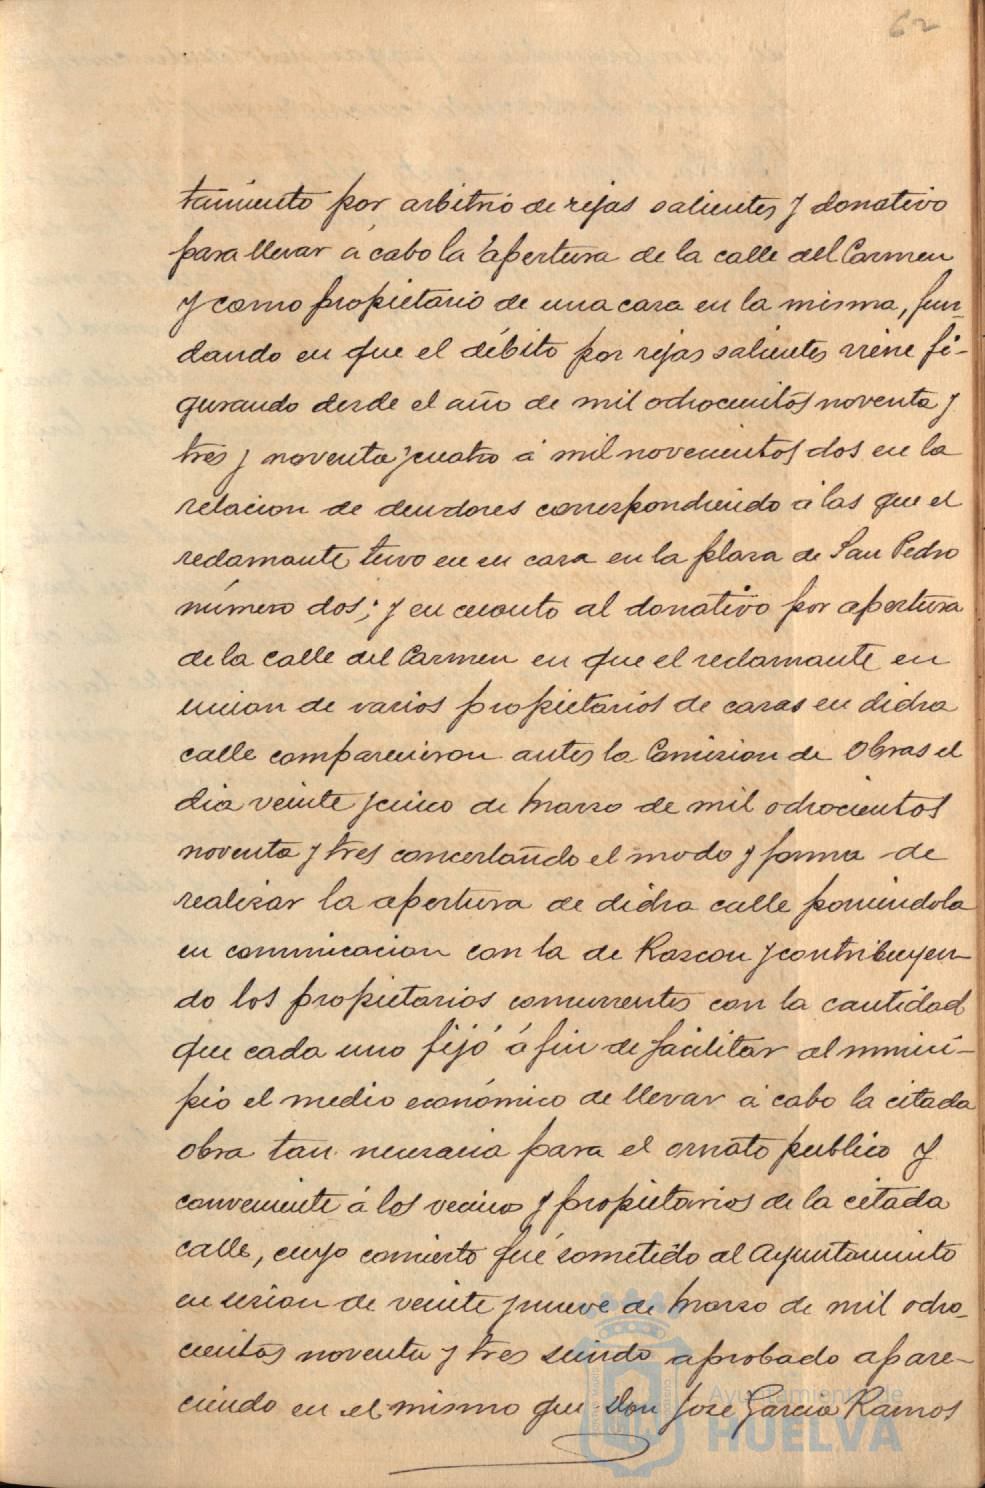 62
tamiento por arbitrio de rejas salientes y donativo
para llevar á cabo la apertura de la calle del Carmen
y como propietario de una casa en la misma, fun-
dando en que el débito por rejas salientes viene fi-
gurando desde el año de mil ochocientos noventa y
tres y noventa y cuatro á mil novecientos dos en la
relacion de deudores correspondiendo á las que el
reclamante tuvo en su casa en la plaza de San Pedro
número dos; y en cuanto al donativo por apertura
de la calle del Carmen en que el reclamante en
union de varios propietarios de casas en dicha
calle comparecieron antes la Comision de Obras el
dia veinte y cinco de Marzo de mil ochocientos
noventa y tres concertando el modo y forma de
realizar la apertura de dicha calle poniendola
en comunicacion con la de Rascon y contribuyen-
do los propietarios concurrentes con la cantidad
que cada uno fijó á fin de facilitar al munici-
pio el medio económico de llevar á cabo la citada
obra tan necesaria para el ornato publico y
conveniente á los vecinos y propietarios de la citada
calle, cuyo concierto fué sometido al Ayuntamiento
en sesion de veinte y nueve de Marzo de mil ocho-
cientos noventa y tres siendo aprobado apare-
ciendo en el mismo que Don José Garcia Ramos
Ayuntamiento de
HUELVA